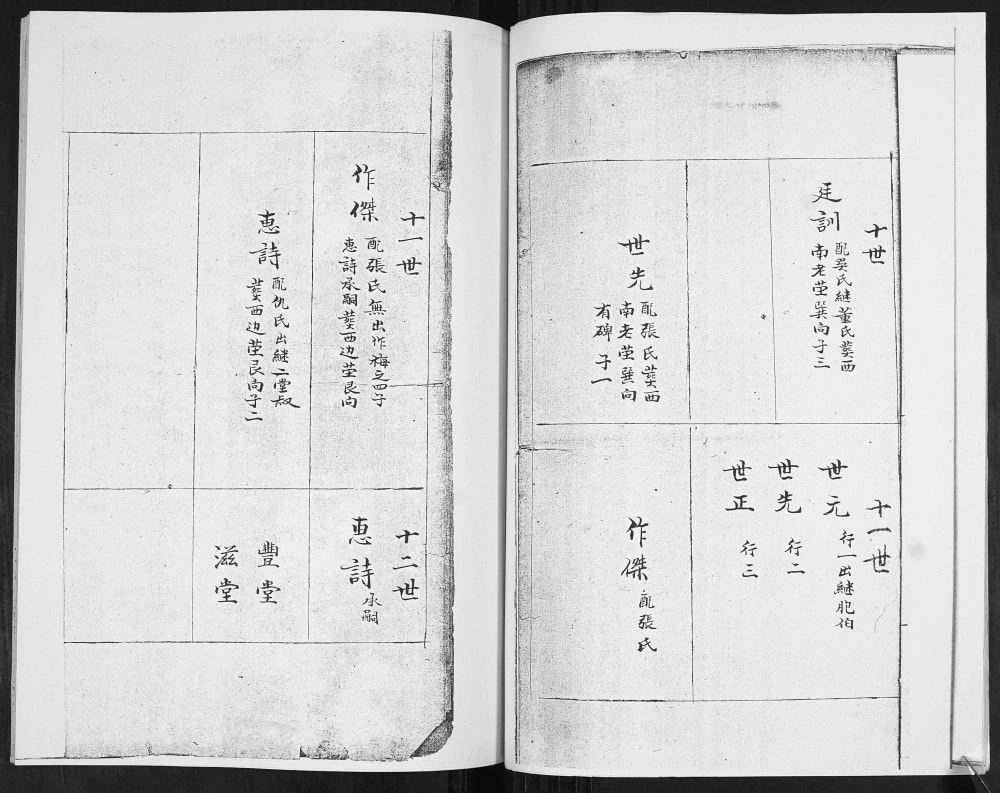 十世
廷訓
配吳氏継董氏葬西
南老茔巽向子三
世先
配張氏葬西
南老茔巽向
有碑子一
十一世
世元 行一出継胞伯
世先 行二
世正 行三
作傑 配張氏
十一世
作傑
配張氏無出作梅之四子
惠詩承嗣葬西边茔艮向
惠詩
配仇氏出継二堂叔
葬西边茔艮向子二
十二世
惠詩 承嗣
豐堂
滋堂